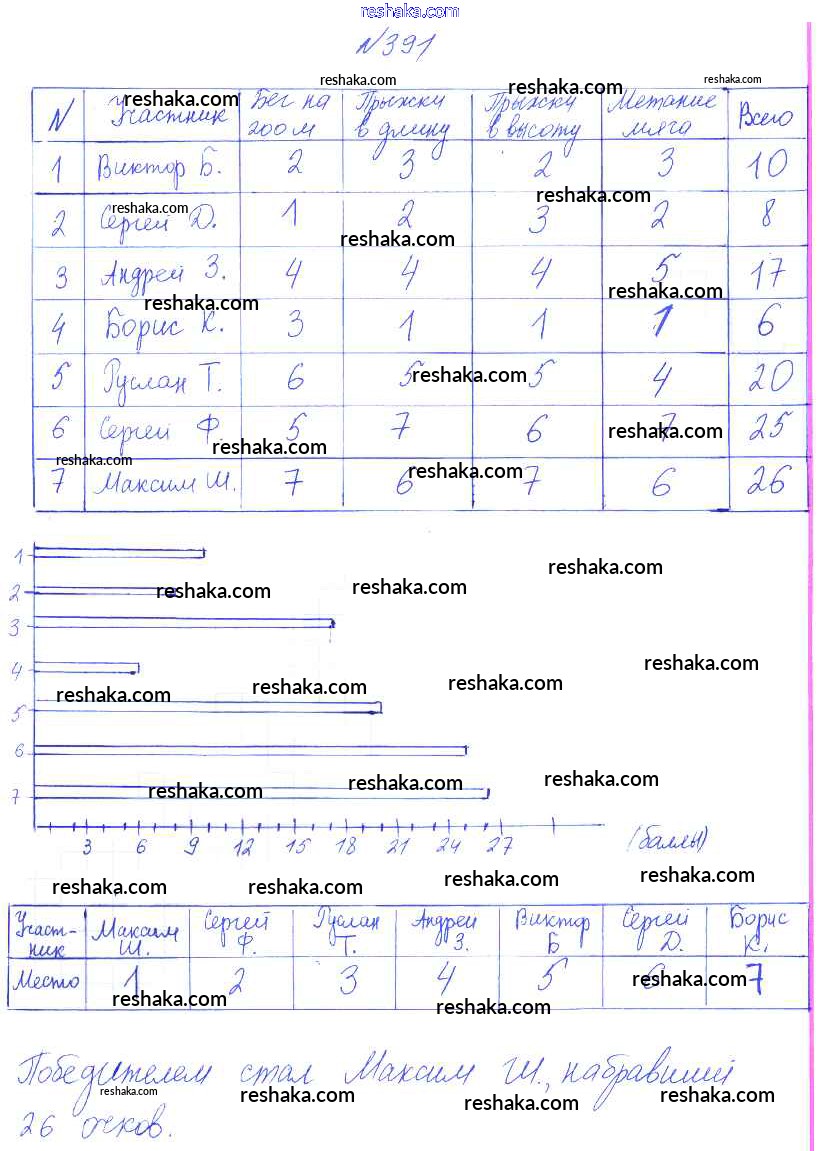 reshaka.com
№391
reshaka.com reshaka.com reshaka.com
N Участник Бег на 200 м Прыжки в длину Прыжки в высоту Метание мяча Всего
reshaka.com
1 Виктор Б. 2 3 2 3 10
reshaka.com
2 Сергей Д. 1 2 3 2 8
reshaka.com reshaka.com
3 Андрей З. 4 4 4 5 17
reshaka.com reshaka.com
4 Борис К. 3 1 1 1 6
5 Руслан Т. 6 5 5 4 20
reshaka.com
6 Сергей Ф. 5 7 6 7 25
reshaka.com reshaka.com
7 Максим Ш. 7 6 7 6 26
reshaka.com reshaka.com
1
reshaka.com
2
reshaka.com reshaka.com
3
4
reshaka.com reshaka.com reshaka.com reshaka.com
5
6
7
reshaka.com reshaka.com reshaka.com
3 6 9 12 15 18 21 24 27 (баллы)
reshaka.com reshaka.com reshaka.com reshaka.com
Участ-ник Максим Ш. Сергей Ф. Руслан Т. Андрей З. Виктор Б Сергей Д. Борис К.
Место 1 2 3 4 5 6 7
reshaka.com reshaka.com reshaka.com
Победителем стал Максим Ш., набравший
reshaka.com reshaka.com reshaka.com reshaka.com
26 очков.